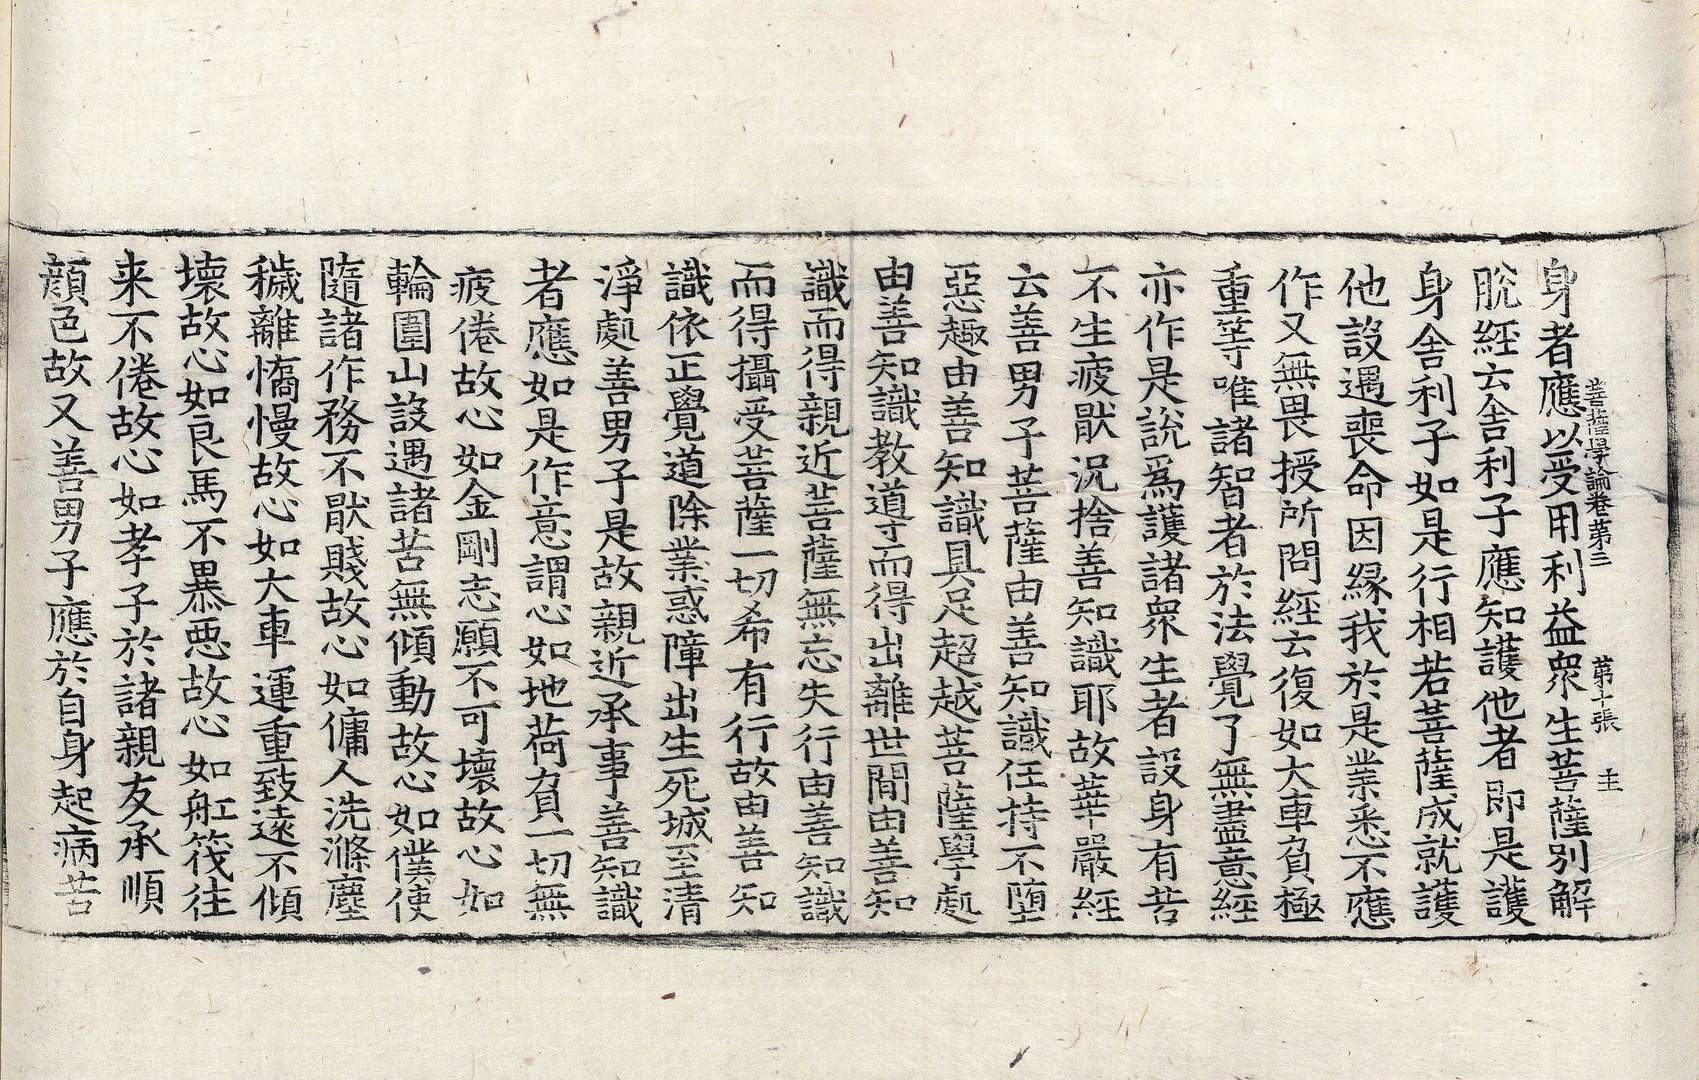 菩薩學論卷第三　第十張　主
身者應以受用利益衆生菩薩別解
脫經云舍利子應知護他者即是護
身舍利子如是行相若菩薩成就護
他設遇喪命因縁我於是業悉不應
作又無畏授所問經云復如大車負極
重等唯諸智者於法覺了無盡意經
亦作是說爲護諸衆生者設身有苦
不生疲猒況捨善知識耶故華嚴經
云善男子菩薩由善知識任持不墮
惡趣由善知識具足超越菩薩學處
由善知識教導而得出離世間由善知
識而得親近菩薩無忘失行由善知識
而得攝受菩薩一切希有行故由善知
識依正覺道除業惑障出生死城至清
淨處善男子是故親近承事善知識
者應如是作意謂心如地荷負一切無
疲倦故心如金剛志願不可壞故心如
輪圍山設遇諸苦無傾動故心如僕使
隨諸作務不猒賤故心如傭人洗滌塵
穢離憍慢故心如大車運重致遠不傾
壞故心如良馬不暴惡故心如舡筏往
来不倦故心如孝子於諸親友承順
顔色故又善男子應於自身起病苦